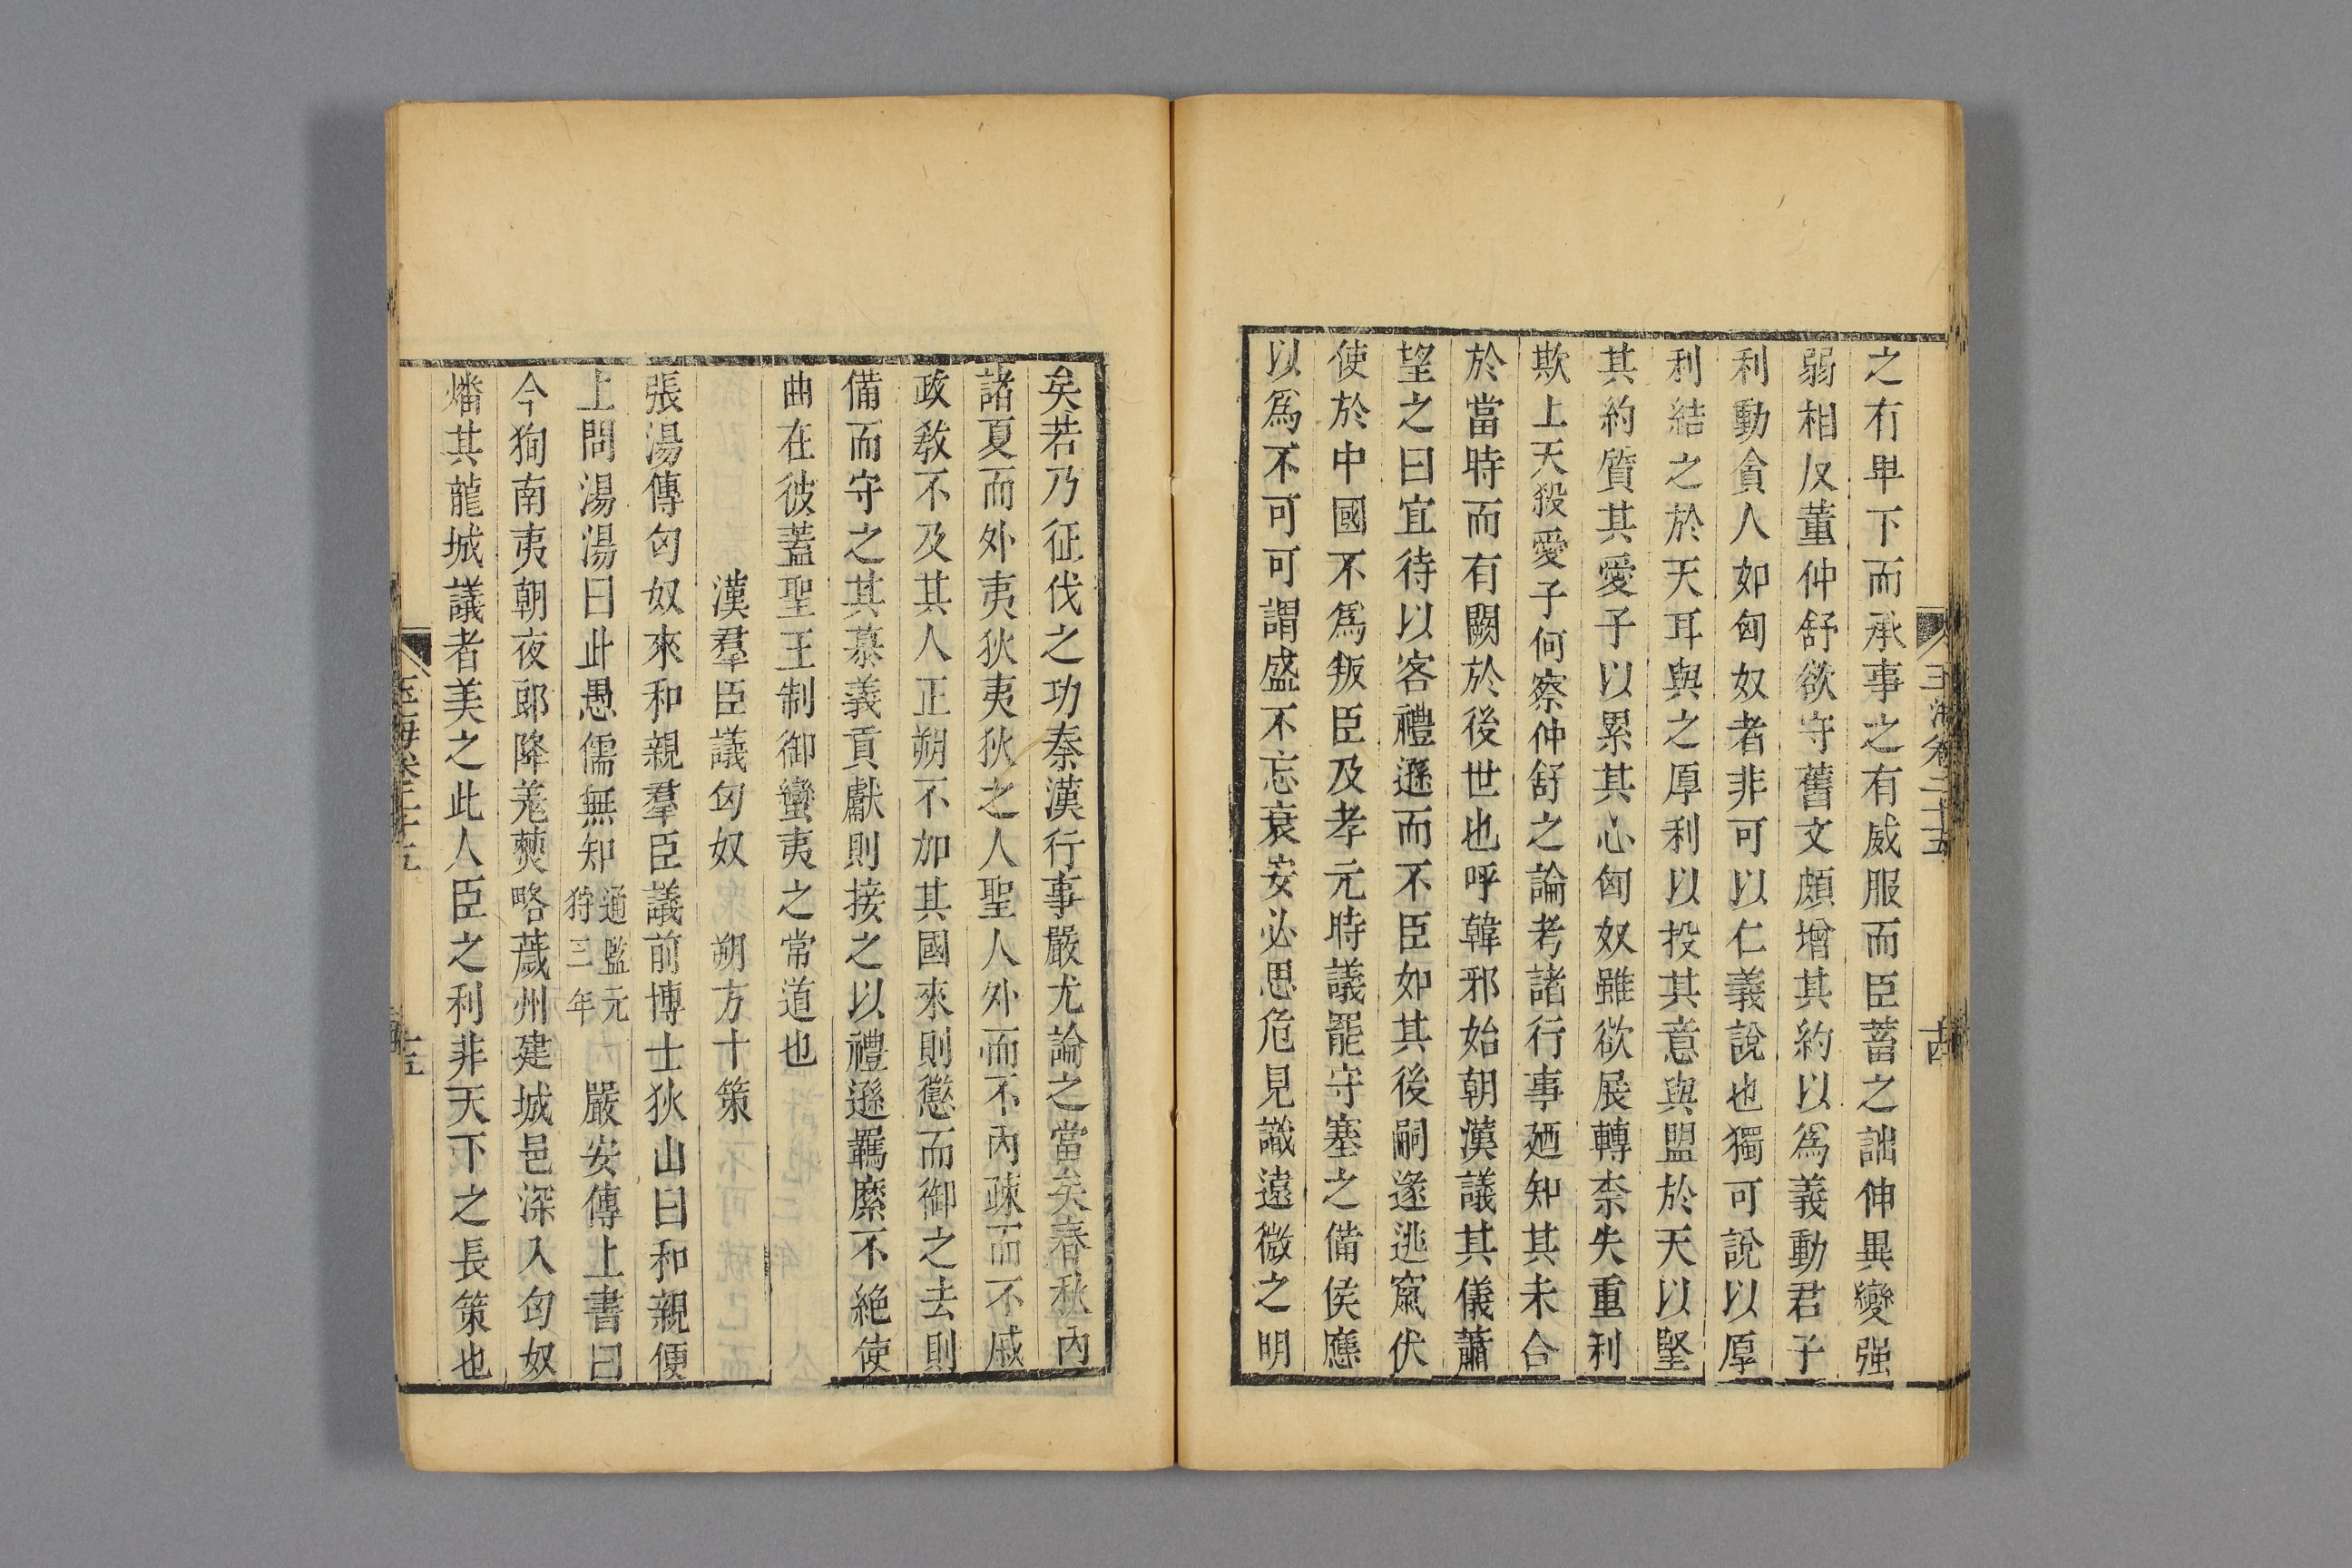 玉海卷二十五
十四
之有卑下而承事之有威服而臣蓄之詘伸異變强
弱相反董仲舒欲守舊文頗增其約以爲義動君子
利動貪人如匈奴者非可以仁義說也獨可說以厚
利結之於天耳與之厚利以投其意與盟於天以堅
其約質其愛子以累其心匈奴雖欲展轉柰失重利
欺上天殺愛子何察仲舒之論考諸行事廼知其未合
於當時而有闕於後世也呼韓邪始朝漢議其儀蕭
望之曰宜待以客禮遜而不臣如其後嗣遂逃竄伏
使於中國不爲叛臣及孝元時議罷守塞之備侯應
以爲不可可謂盛不忘衰安必思危見識遠微之明
矣若乃征伐之功秦漢行事嚴尤論之當矣春秋內
諸夏而外夷狄夷狄之人聖人外而不內疎而不戚
政敎不及其人正朔不加其國來則懲而御之去則
備而守之其慕義貢獻則接之以禮遜羈縻不絶使
曲在彼蓋聖王制御蠻夷之常道也
漢羣臣議匈奴　朔方十策
張湯傳匈奴來和親羣臣議前博士狄山曰和親便
上問湯湯曰此愚儒無知通鑑元狩三年　嚴安傳上書曰
今狥南夷朝夜郎降羌僰略薉州建城邑深入匈奴
燔其龍城議者美之此人臣之利非天下之長策也
玉海卷二十五
十五